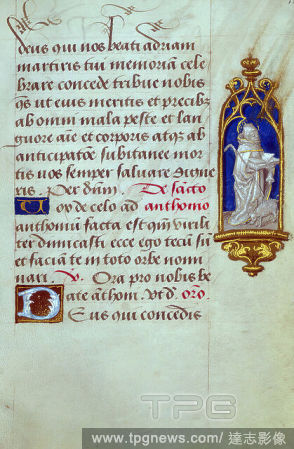 deus qui nos beati adriani
martiris tui memoriam cele
brare concede tribue nobis
q̃s ut eius meritis et precibꝫ
ab omni mala peste et lan
guore aı̃e et corporis atqꝫ ab
anticipatõe subitanee mor
tis nos semper saluare digne
ris. Per dñm. De sãcto
Vox de celo ad anthonio
anthonium facta est qm̃ virili
ter dimicasti ecce ego tecum sũ
et faciam te in toto orbe nomi
nari. V. Ora pro nobis be
ate anthoni. vt d. orõ.
Deus qui concedis
TPG
www.tpgnews.com / 達志影像